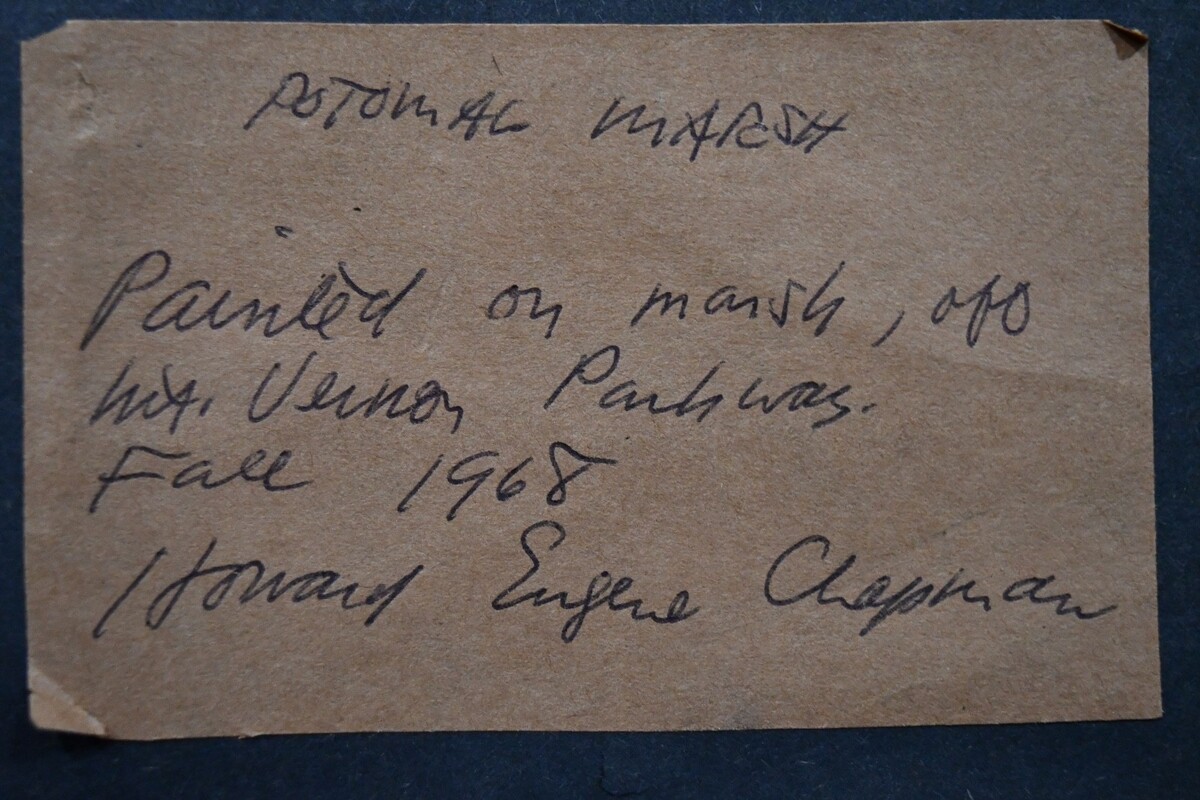 POTOMAC MARSH
Painted on marsh, off
Mt. Vernon Parkway.
Fall 1968
Howard Eugene Chapman